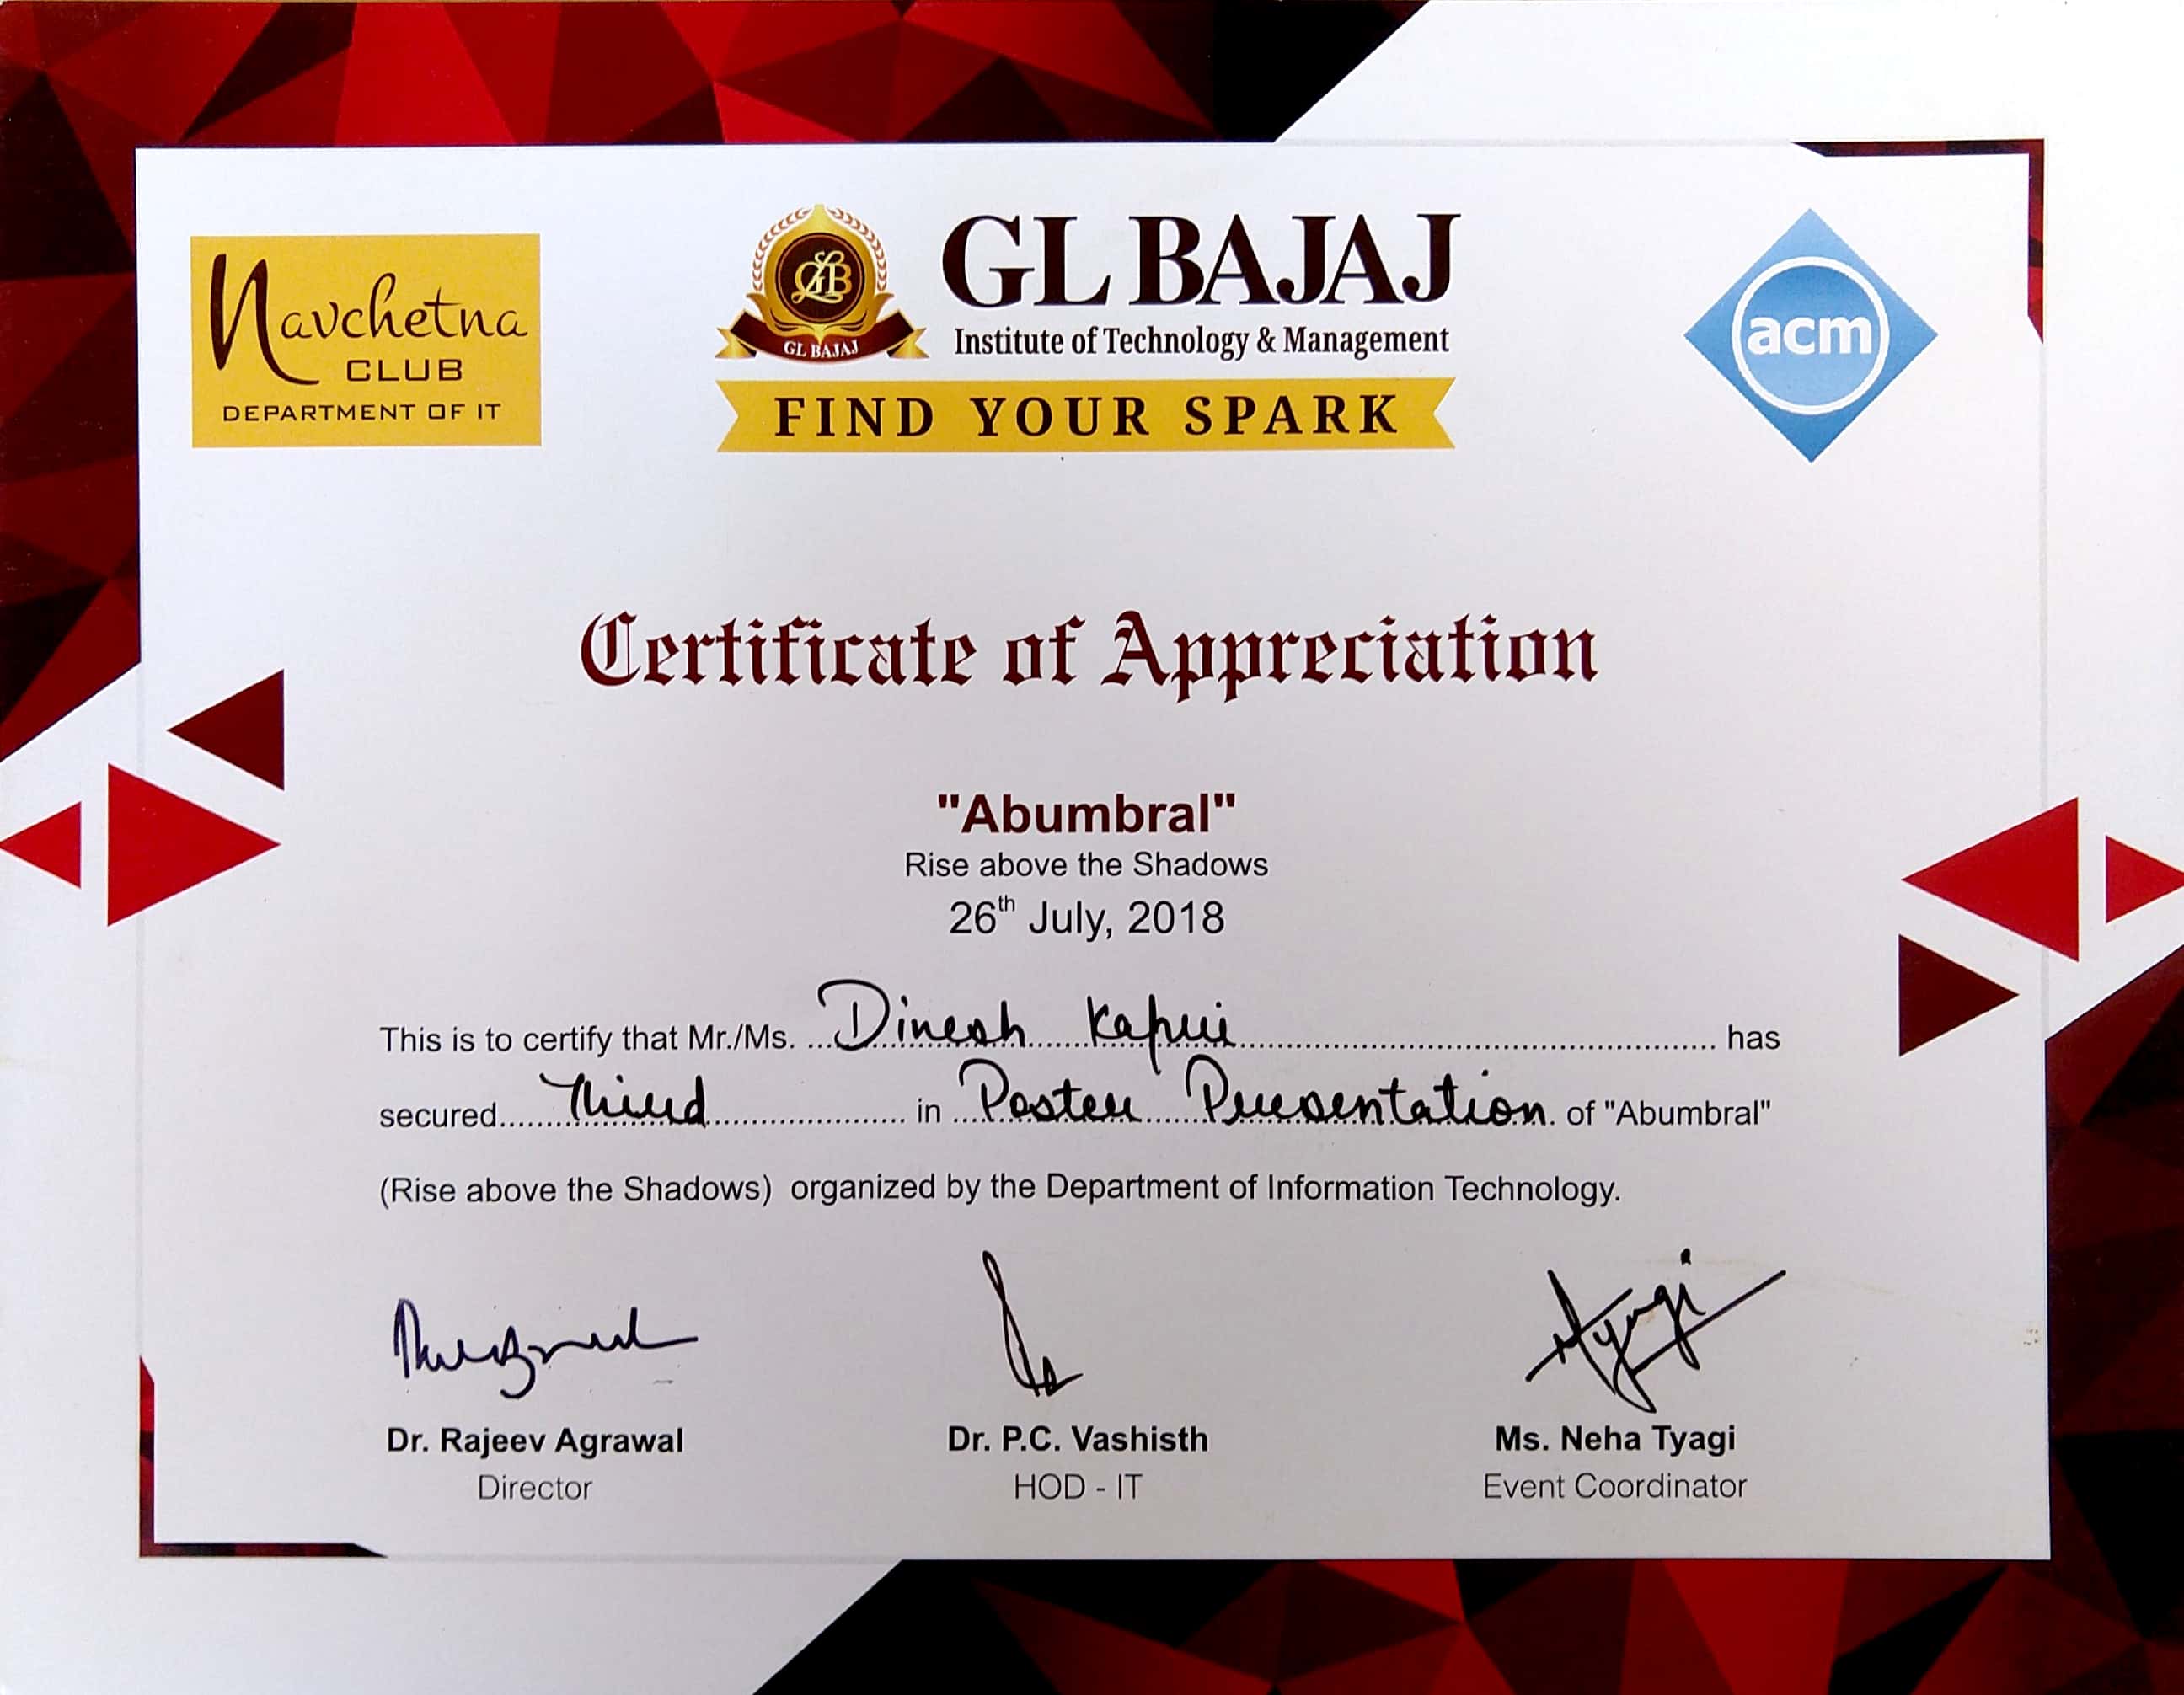 Navchetna
CLUB
DEPARTMENT OF IT
GL BAJAJ
GL BAJAJ
Institute of Technology & Management
FIND YOUR SPARK
acm
Certificate of Appreciation
"Abumbral"
Rise above the Shadows
26th July, 2018
This is to certify that Mr./Ms. Dinesh Kapri has
secured Third in Poster Presentation of "Abumbral"
(Rise above the Shadows) organized by the Department of Information Technology.
Tyagi
Dr. Rajeev Agrawal
Dr. P.C. Vashisth
Ms. Neha Tyagi
Director
HOD - IT
Event Coordinator